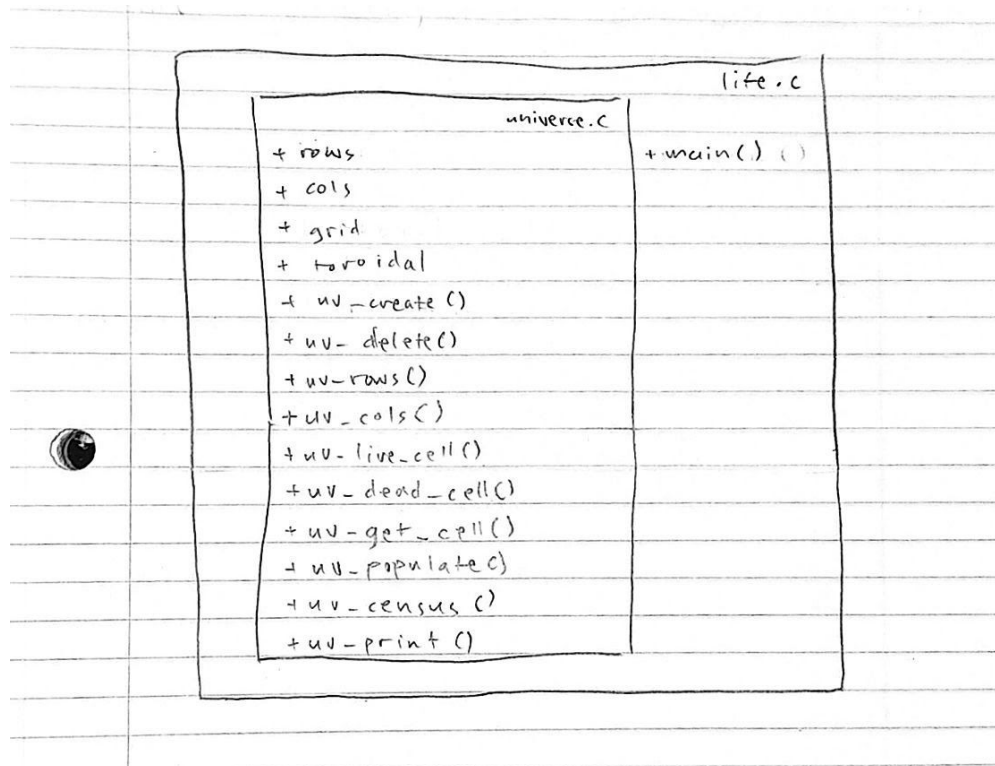 life.c
universe.c
+ rows
+ main() ()
+ cols
+ grid
+ toroidal
+ uv_create()
+ uv_delete()
+ uv_rows()
+ uv_cols()
+ uv_live_cell()
+ uv_dead_cell()
+ uv_get_cell()
+ uv_populate()
+ uv_census()
+ uv_print()